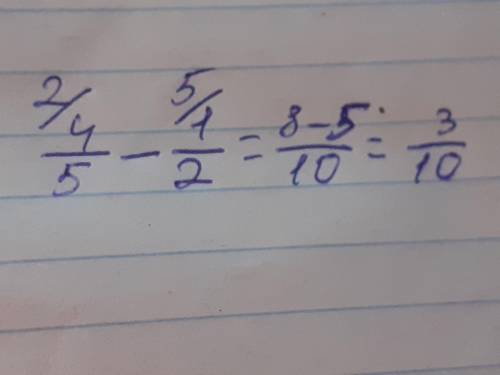 2/4/5 − 5/1/2 = 8−5/10 = 3/10